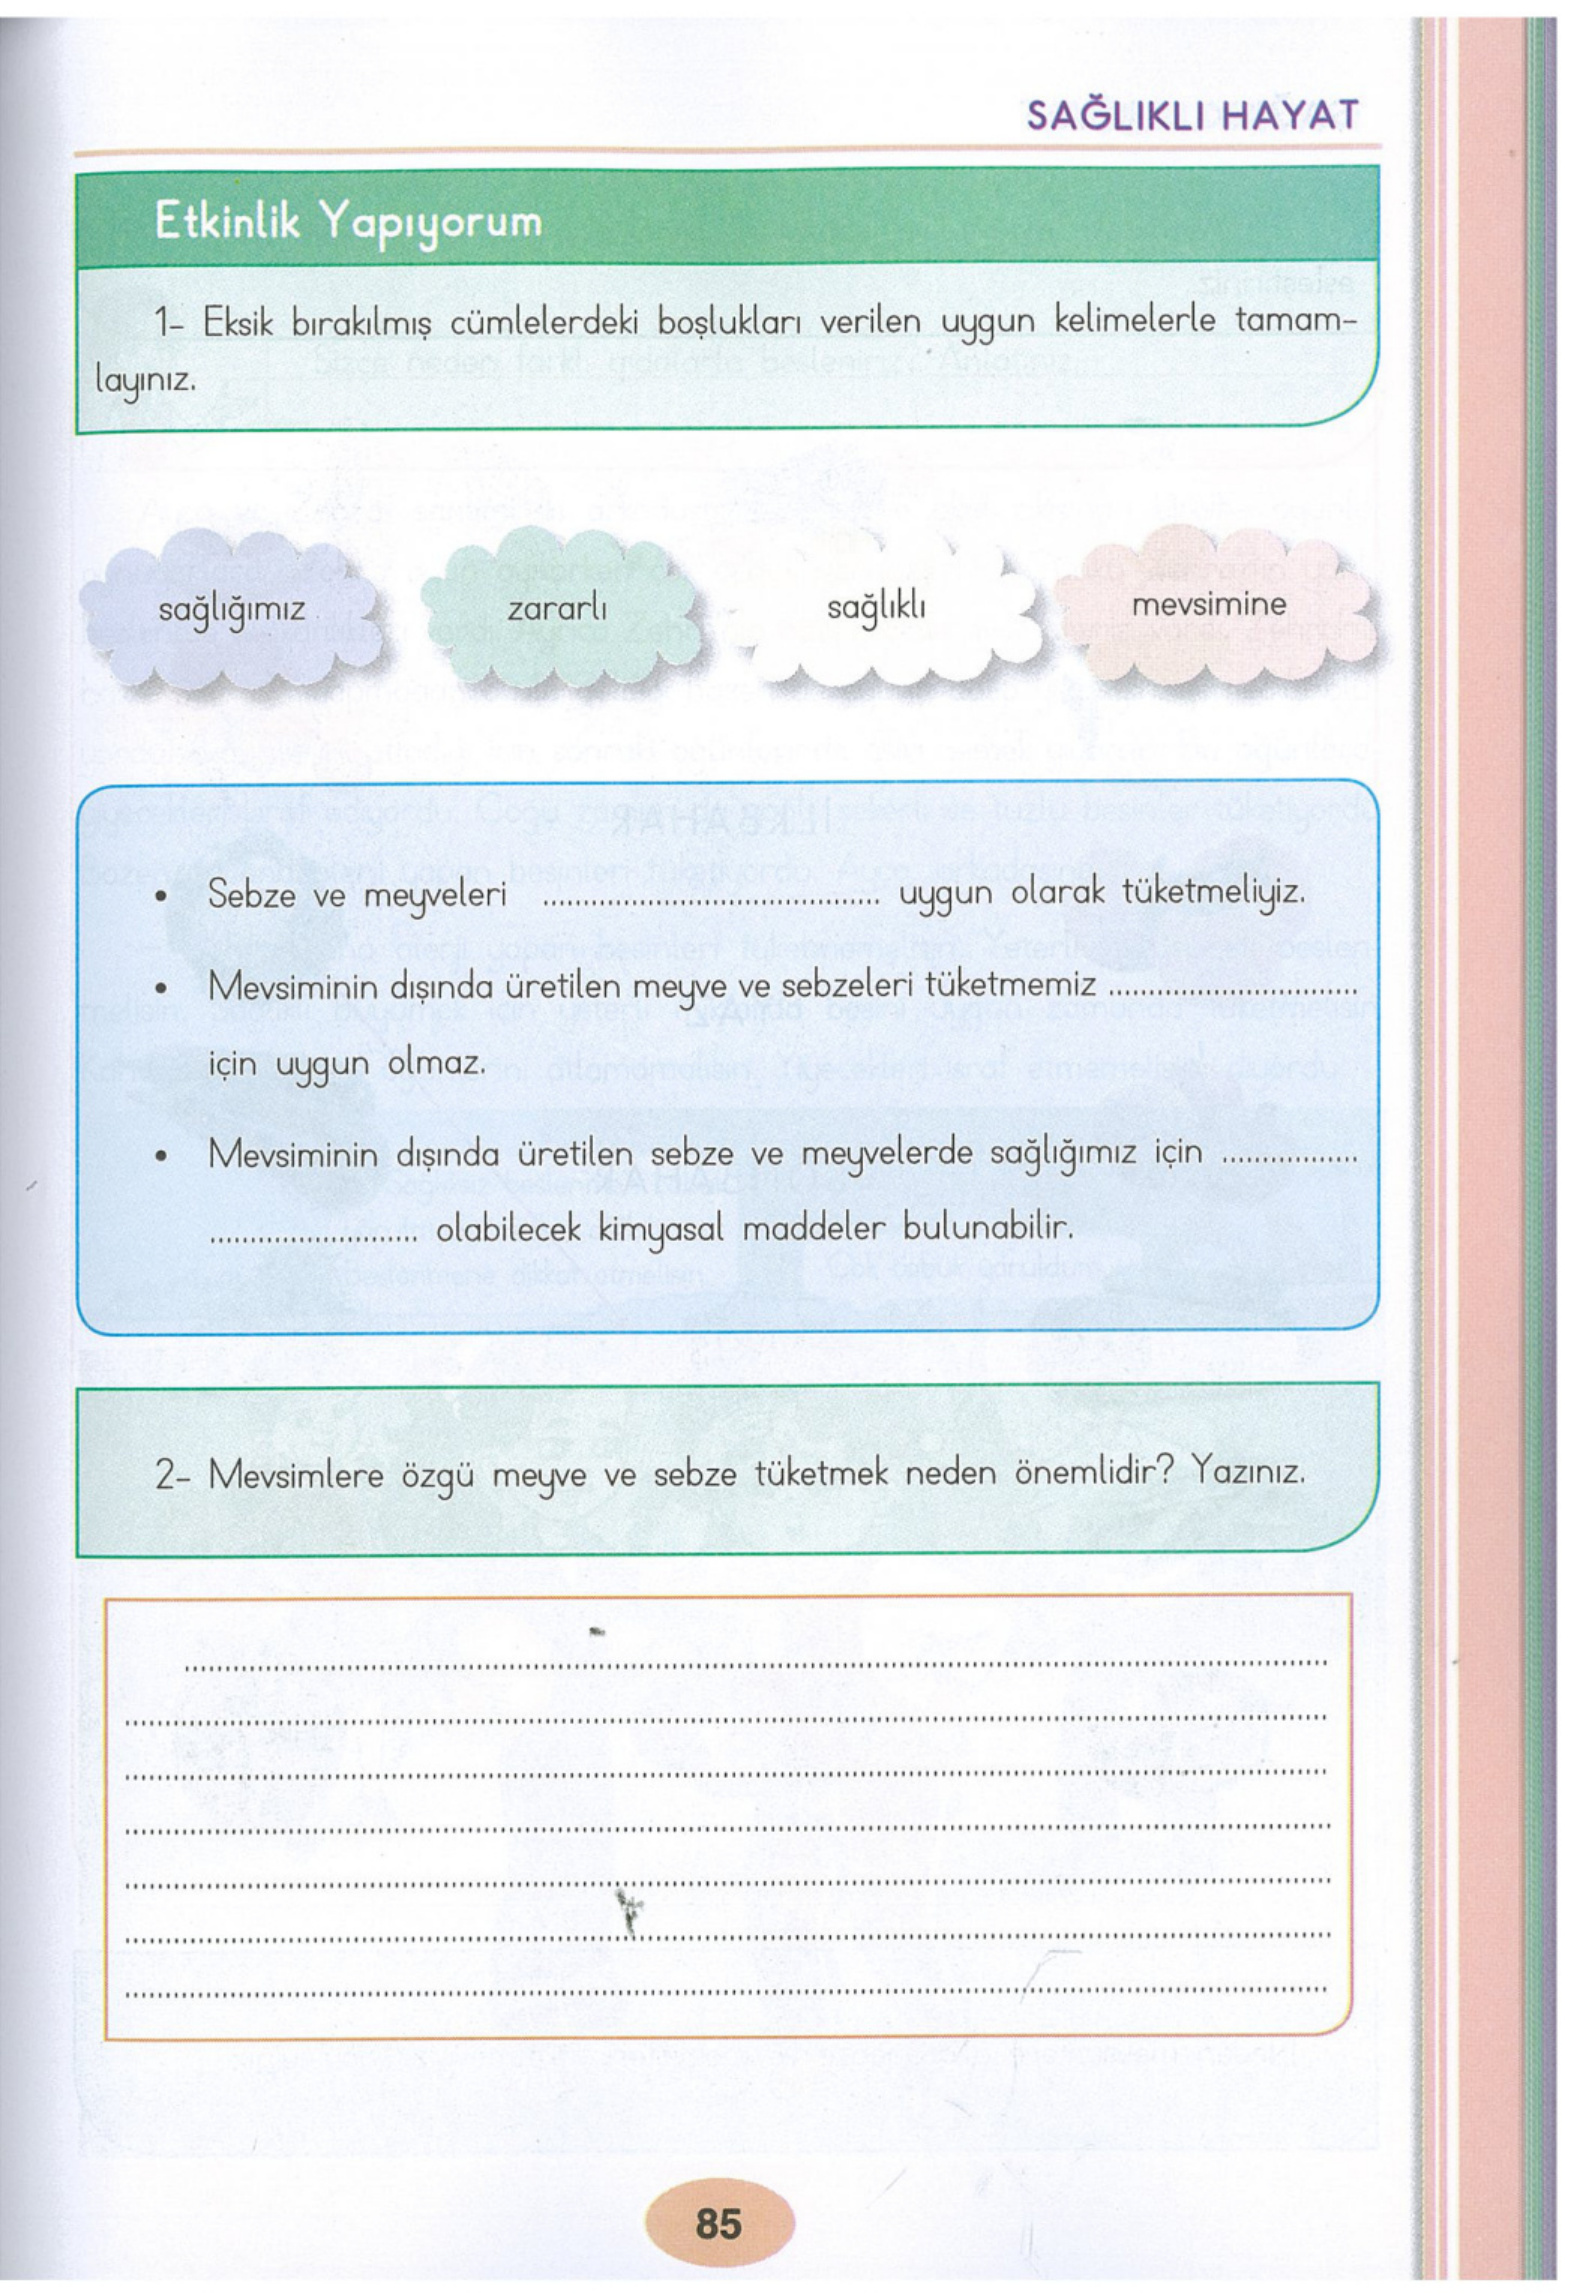 SAĞLIKLI HAYAT
Etkinlik Yapıyorum
1- Eksik bırakılmış cümlelerdeki boşlukları verilen uygun kelimelerle tamam-
layınız.
sağlığımız zararlı sağlıklı mevsimine
• Sebze ve meyveleri ........................................ uygun olarak tüketmeliyiz.
• Mevsiminin dışında üretilen meyve ve sebzeleri tüketmemiz ..............................
için uygun olmaz.
• Mevsiminin dışında üretilen sebze ve meyvelerde sağlığımız için .................
.......................... olabilecek kimyasal maddeler bulunabilir.
2- Mevsimlere özgü meyve ve sebze tüketmek neden önemlidir? Yazınız.
85